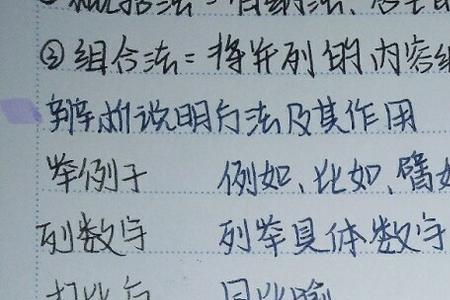 ②组合法=将并列的内容组
辨析说明方法及其作用
举例子 例如、比如、譬如
列数字 列举具体数字
打比方 同比喻